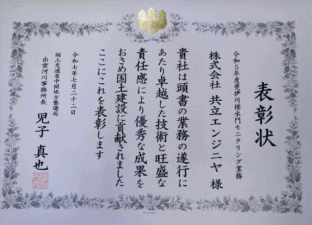 表彰状
令和5年度斐伊川揚水門モニタリング業務
株式会社 共立エンジニヤ 様
貴社は頭書の業務の遂行に
あたり卓越した技術と旺盛な
責任感により優秀な成果を
おさめ国土建設に貢献されました
ここにこれを表彰します
令和七年七月二十二日
国土交通省中国地方整備局
出雲河川事務所長
児子 真也